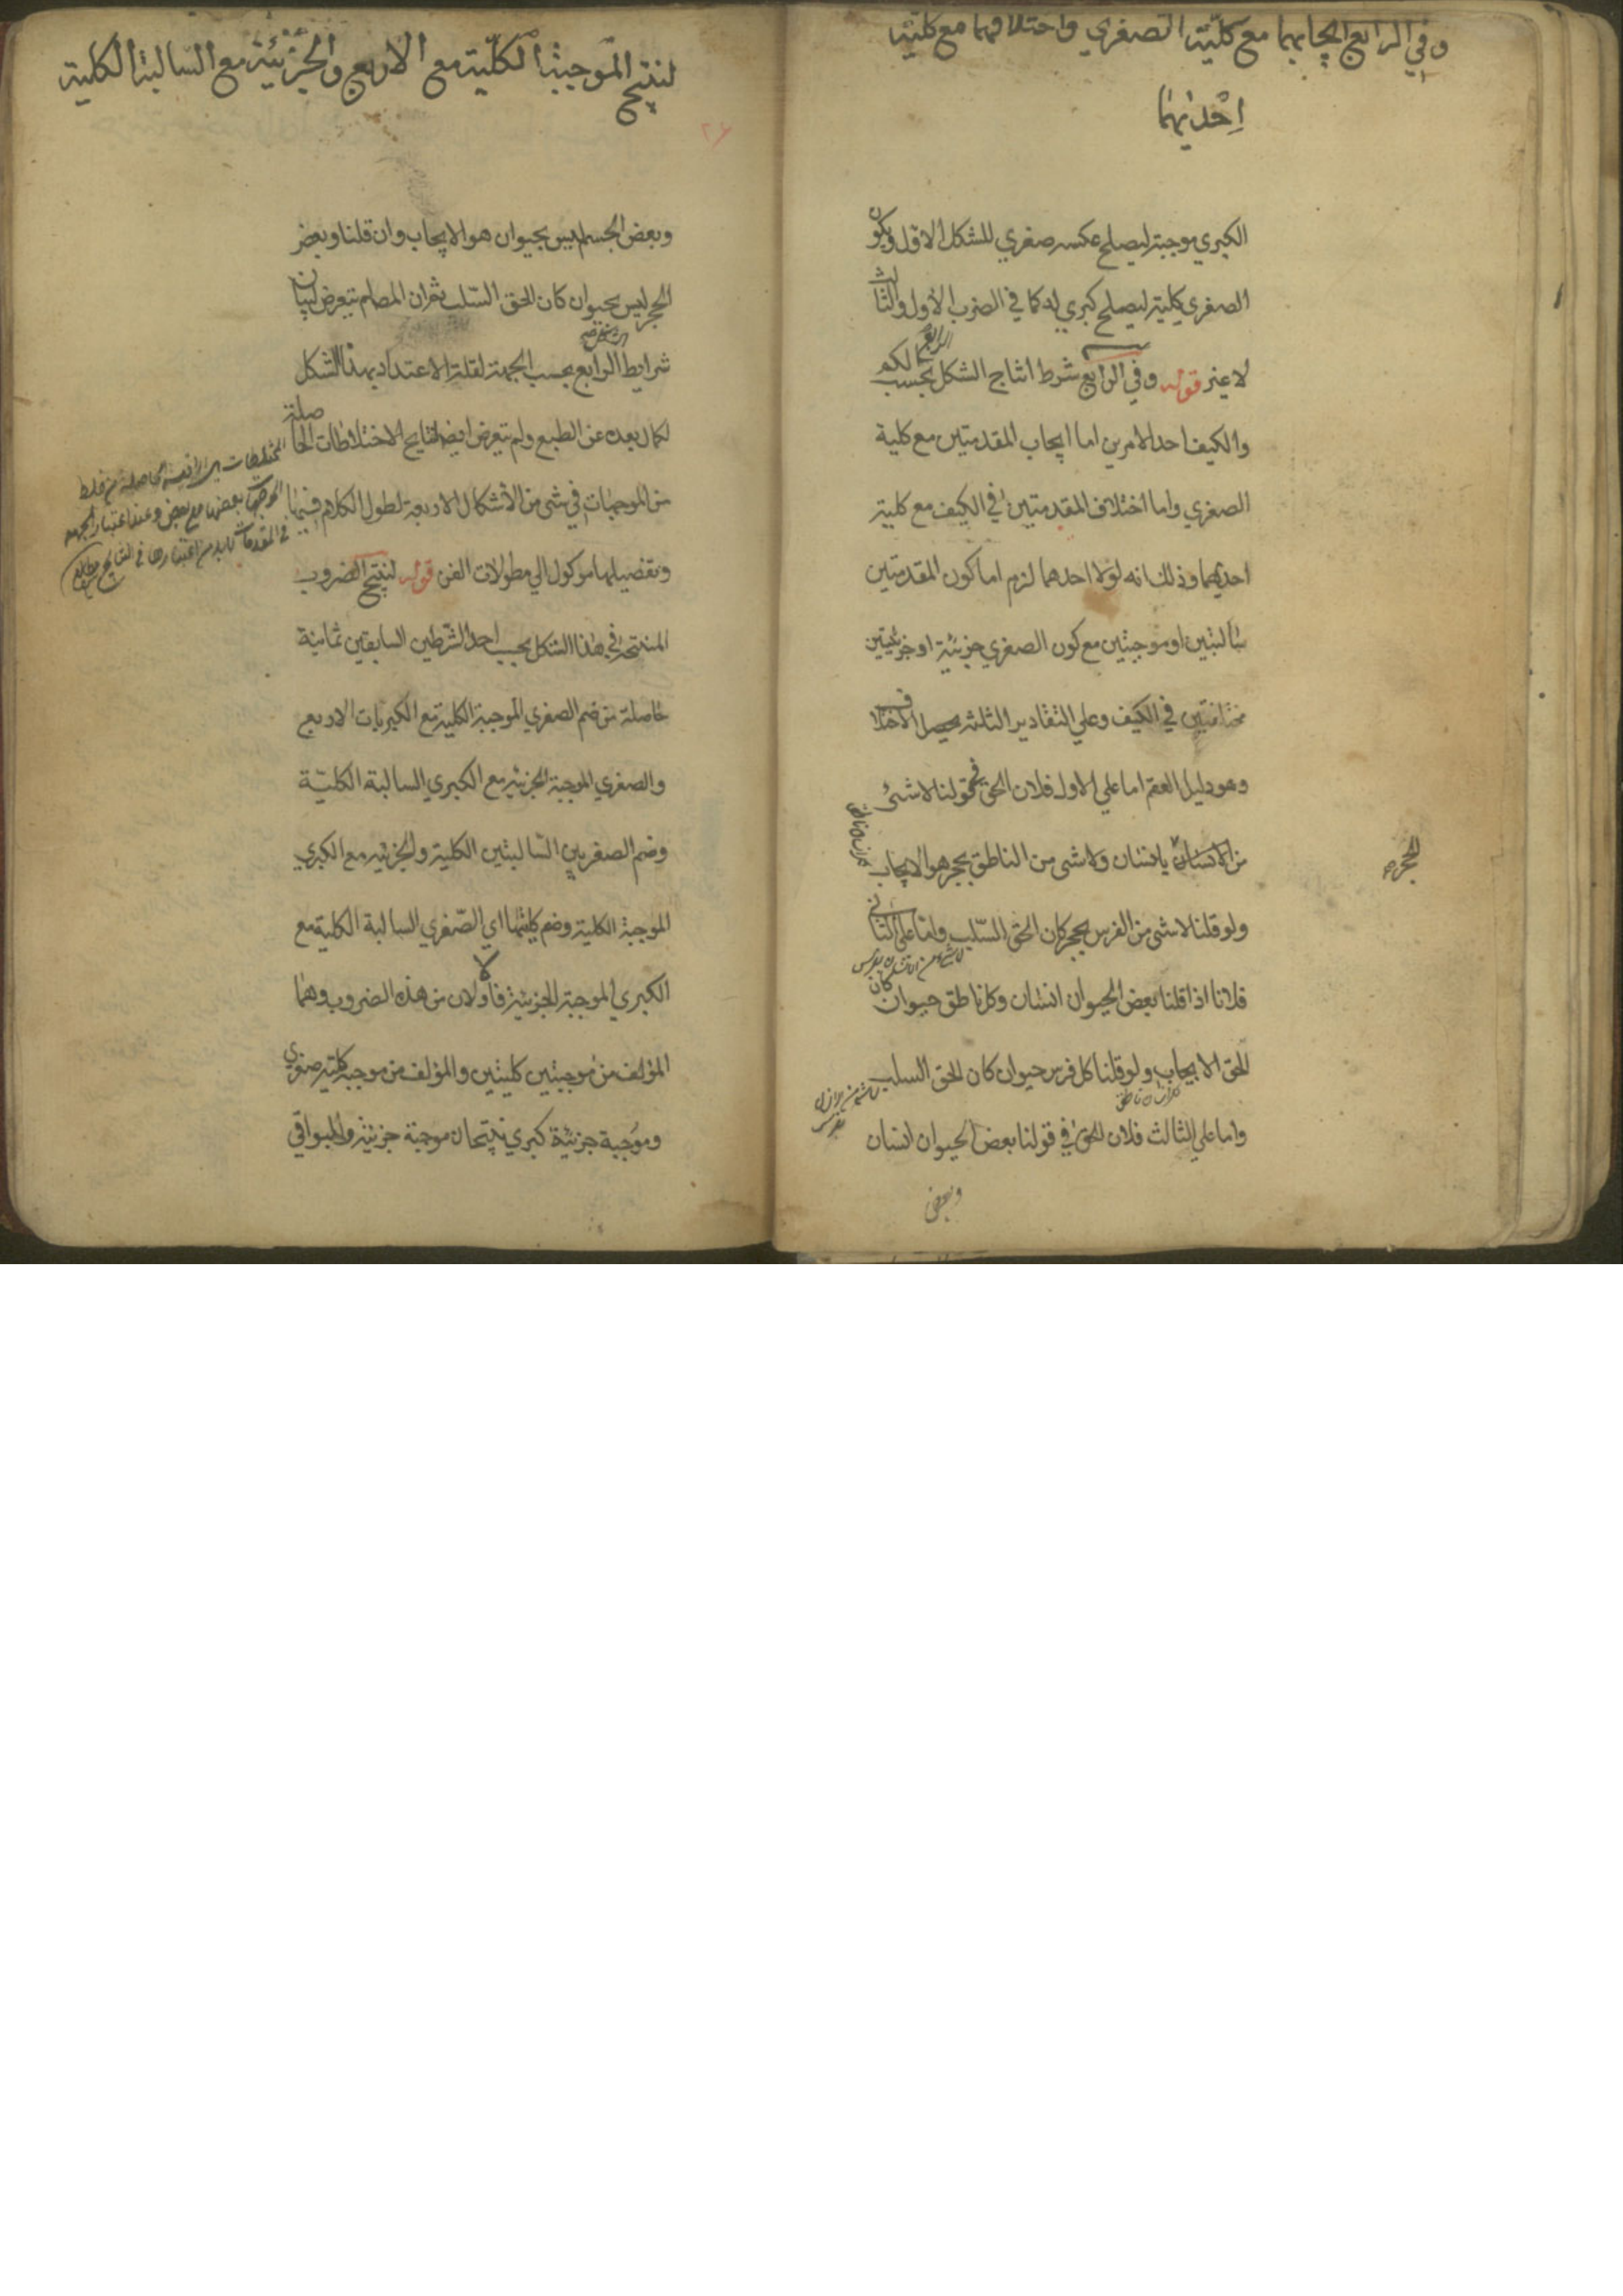 وفي الرابع ايجابهما مع كليّة الصغري واختلافهما مع كليّة
اِحْديٰهما
الكبري موجبة ليصلح عكسه صغري للشكل الاول ويكون
الصغري كلية ليصلح كبري له كما في الضرب الاول والثالث
لا غير قوله وفي الرابع شرط انتاج الشكل الرابع بحسب الكم
والكيف احد الامرين اما ايجاب المقدمتين مع كلية
الصغري واما اختلاف المقدمتين في الكيف مع كلية
احديهما وذلك انه لولا احدهما لزم اما كون المقدمتين
سالبتين او موجبتين مع كون الصغري جزئية او جزئيتين
مختلفتين في الكيف وعلي التقادير الثلثة يحصل الاختلاف
وهو دليل العقم اما علي الاول فلان الحق في قولنا لا شئ
من الانسان بانسان ولا شئ من الناطق بحجر هو الايجاب
الحجر
ولو قلنا لا شئ من الفرس بحجر كان الحق السّلب واما علي الثاني
لا شئ من الانسان بفرس
فلانا اذا قلنا بعض الحيوان انسان وكل ناطق حيوان كان
الحق الايجاب ولو قلنا كل فرس حيوان كان الحق السلب
كل انسان ناطق
واما علي الثالث فلان الحق في قولنا بعض الحيوان انسان
وبعض
لنتيج الموجبة الكليّة مع الاربع والجزئيّة مع السّالبة الكلية
٢٤
وبعض الجسم ليس بحيوان هو الايجاب وان قلنا وبعض
الحجر ليس بحيوان كان الحق السّلب ثم ان المص لم يتعرض لبيان
شرايط الرابع بحسب الجهة لقلة الاعتداد بهذا الشكل
لكمال بعده عن الطبع ولم يتعرض ايضا لنتايج الاختلاطات الحاصلة
من الموجهات في شئ من الأشكال الاربعة لطول الكلام فيها
المختلطات هي الاقيسة الحاصلة من خلط
الموجهات بعضها مع بعض وعند اعتبار الجهة
في المقدمات لا بد من اعتبارها في النتايج
وتفصيلها موكول الي مطولات الفن قوله لنتيج الضروب
المنتجة في هذا الشكل بحسب احد الشّرطين السابقين ثمانية
حاصلة من ضم الصغري الموجبة الكلية مع الكبريات الاربع
والصغري الموجبة الجزئية مع الكبري السالبة الكليّة
وضم الصغريين السّالبتين الكلية والجزئية مع الكبري
الموجبة الكلية وضم كليتها اي الصّغري السالبة الكلية مع
الكبري الموجبة الجزئية فالاولان من هذه الضروب وهما
المؤلف من موجبتين كليتين والمؤلف من موجبة كلية صغري
وموجبة جزئية كبري ينتجان موجبة جزئية والبواقي